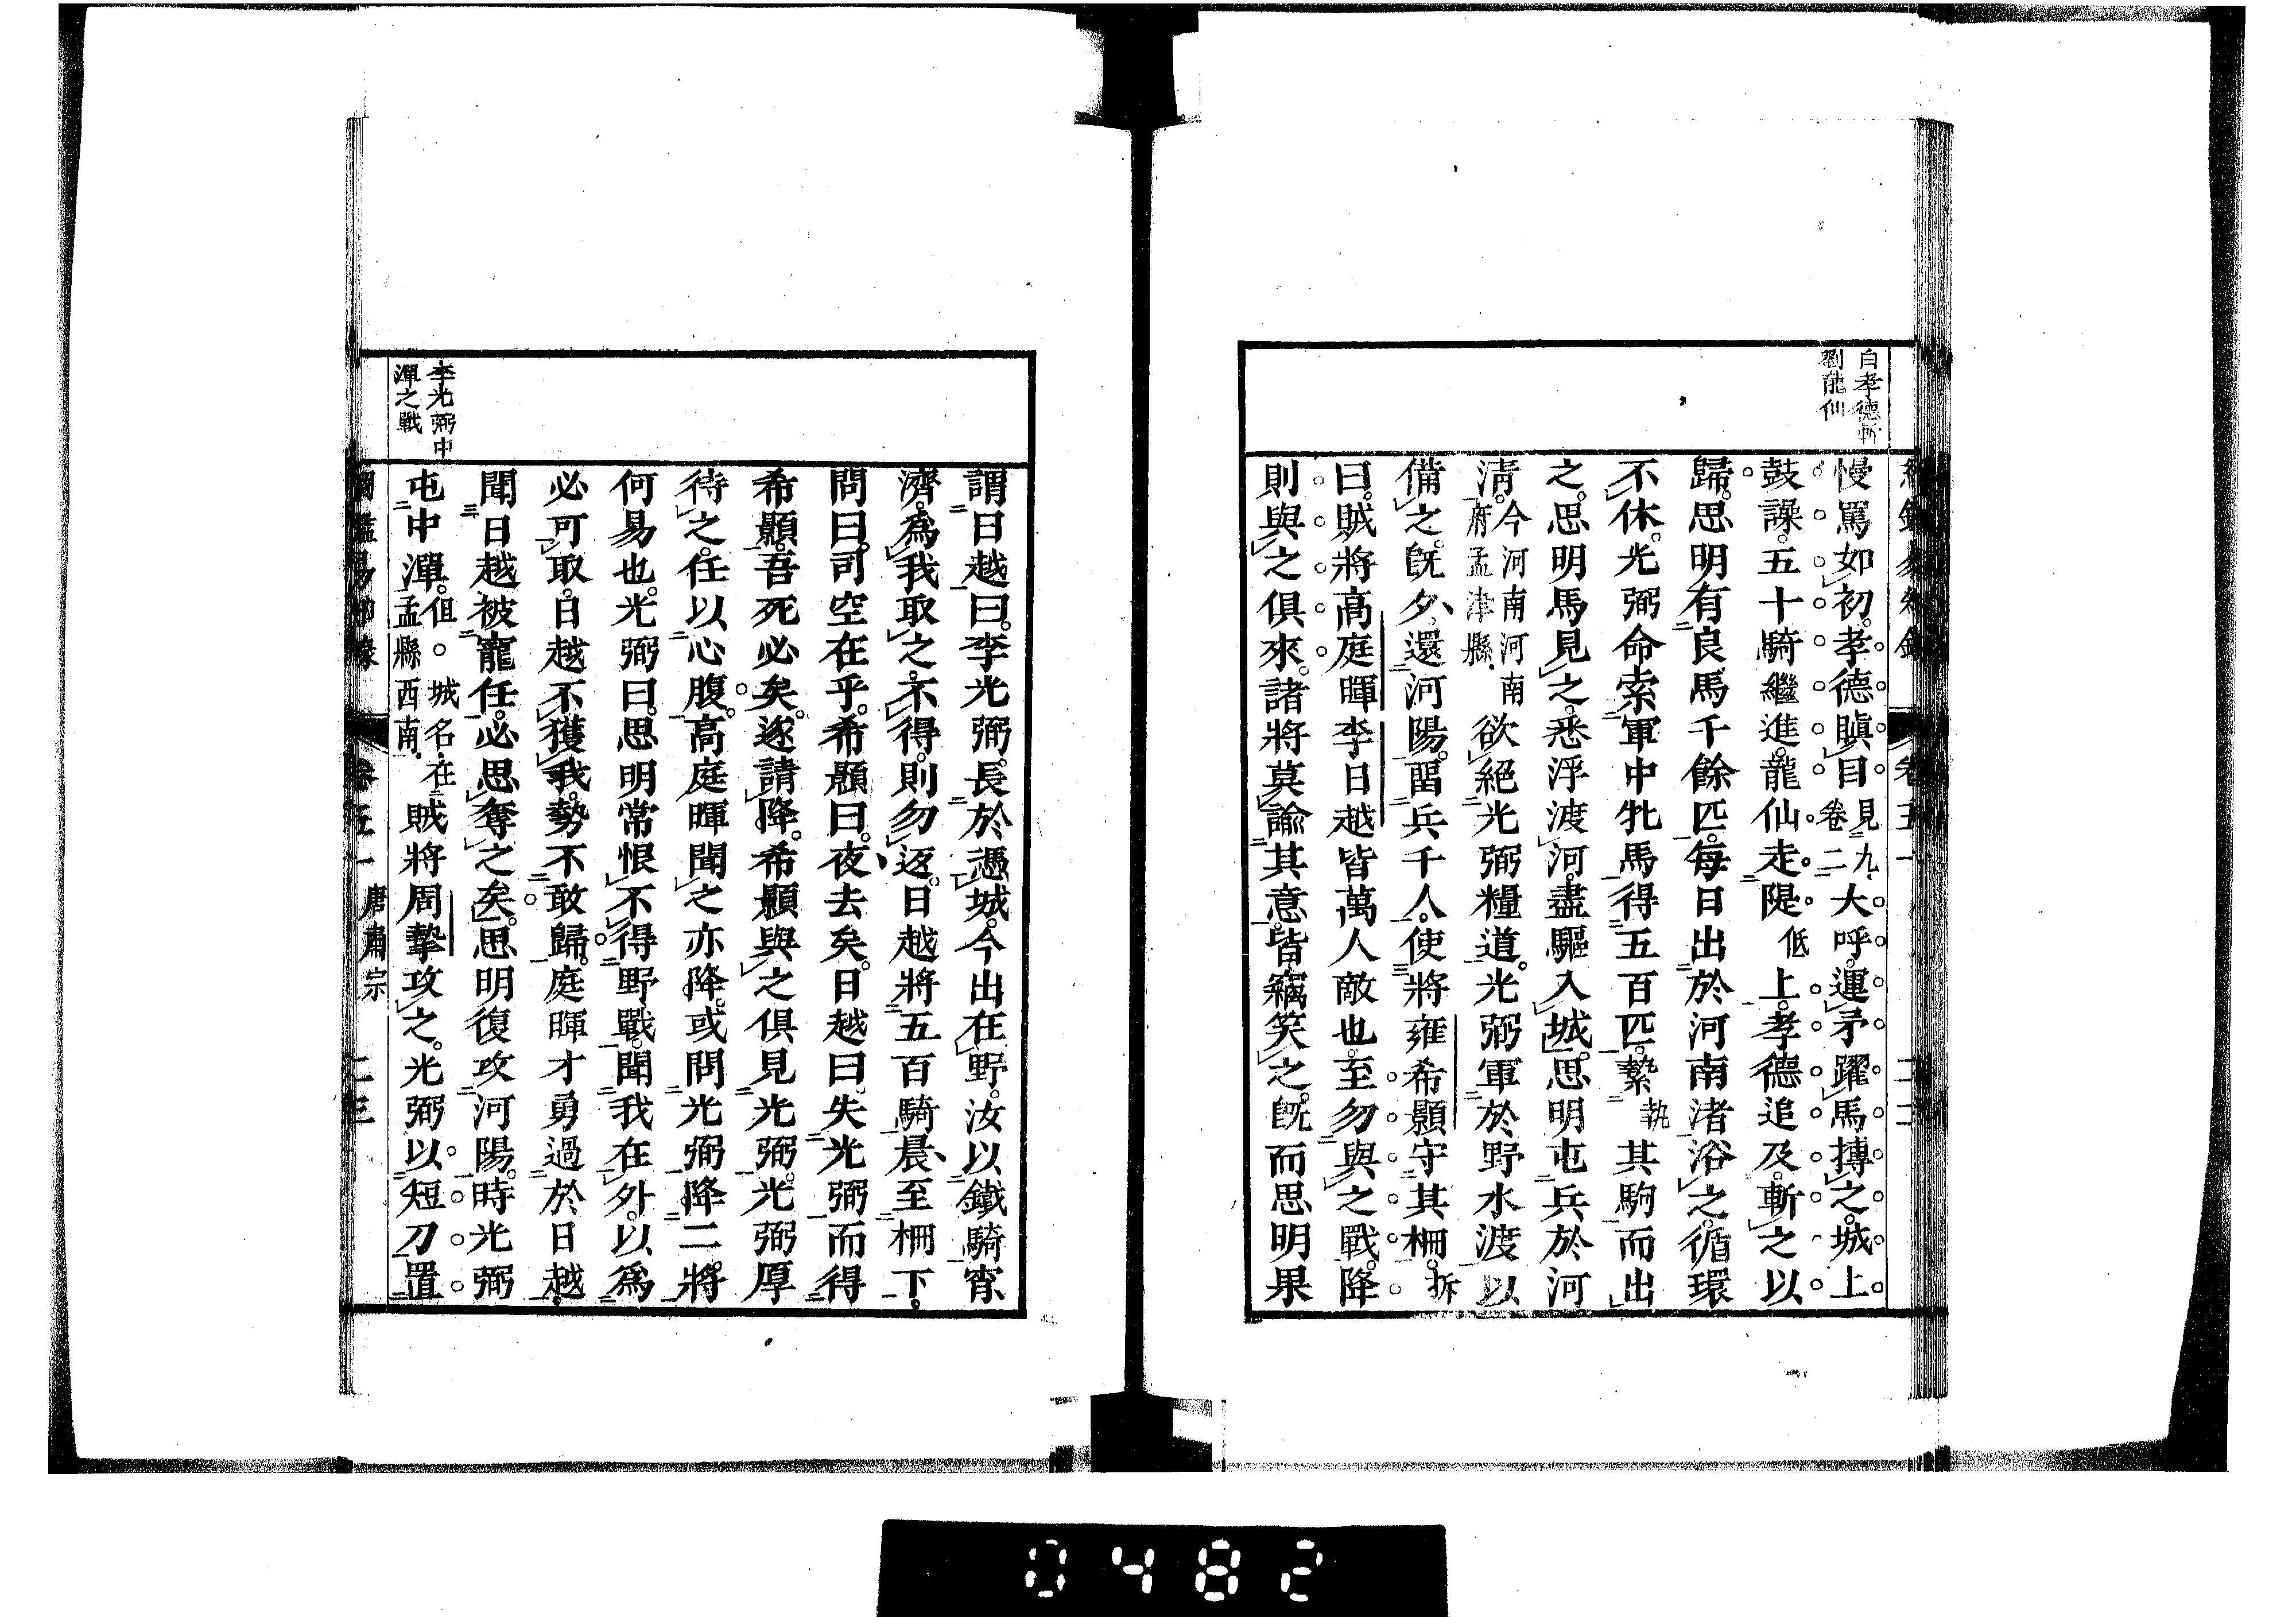 白孝德斬
劉龍仙
慢罵如初。孝德瞋目見九卷二大呼。運矛躍馬搏之。城上
鼓譟。五十騎繼進。龍仙走隄低上。孝德追及。斬之以
歸。思明有良馬千餘匹。每日出於河南渚浴之。循環
不休。光弼命索軍中牝馬得五百匹。縶執其駒而出
之。思明馬見之。悉浮渡河。盡驅入城。思明屯兵於河
清。今河南河南府孟津縣欲絕光弼糧道。光弼軍於野水渡以
備之。既夕、還河陽。畱兵千人。使將雍希顥守其柵。拆
曰。賊將高庭暉李日越皆萬人敵也。至勿與之戰。降
則與之俱來。諸將莫諭其意。皆竊笑之。既而思明果
卷五一
二二
李光弼中
潬之戰
謂日越曰。李光弼。長於憑城。今出在野。汝以鐵騎宵
濟。爲我取之。不得。則勿返。日越將五百騎晨、至柵下。
問曰。司空在乎。希顥曰。夜、去矣。日越曰。失光弼而得
希顥。吾死必矣。遂請降。希顥與之俱見光弼。光弼厚
待之。任以心腹。高庭暉聞之亦降。或問光弼降二將
何易也。光弼曰。思明常恨不得野戰。聞我在外。以爲
必可取。日越不獲我。勢不敢歸。庭暉才勇過於日越。
聞日越被寵任。必思奪之矣。思明復攻河陽。時光弼
屯中潬。但。城名。在孟縣西南。賊將周摯攻之。光弼以短刀置
綱鑑易知錄 卷五一 唐肅宗 二三